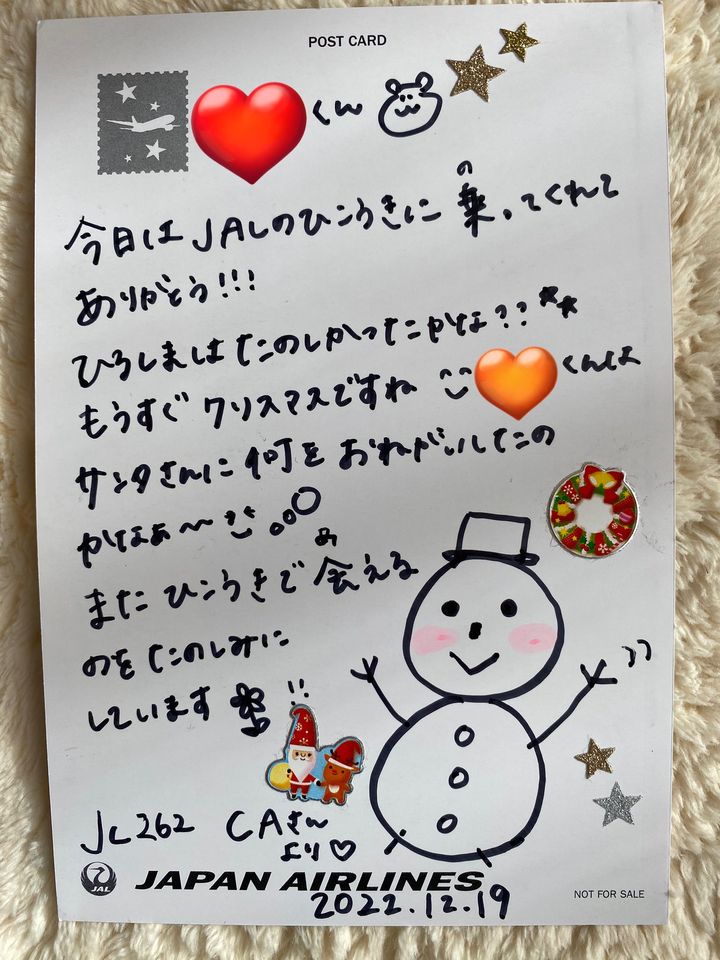 POST CARD
くん
今日はJALのひこうきに乗ってくれて
の
ありがとう!!!
ひろしまはたのしかったかな??
もうすぐクリスマスですね
くんは
サンタさんに何をおねがいしたの
かなぁ〜
またひこうきで会える
あ
のをたのしみに
しています!!
JL262 CAさん
より♡
JAL
JAPAN AIRLINES
2022.12.19
NOT FOR SALE